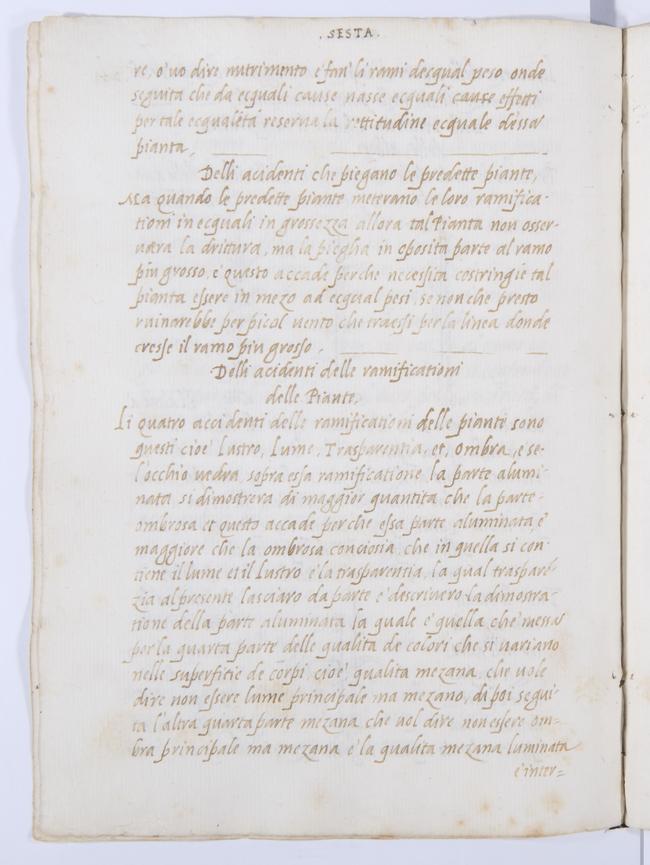 . SESTA .
re, o' vo dire nutrimento e fan' li rami decqual peso onde
seguita che da ecquali cause nasse ecquali cause effetti
per tale ecqualeta reserva la rettitudine ecquale dessa
pianta.
Delli acidenti che piegano le predette piante,
Ma quando le predette piante meterano le loro ramifica-
tioni in ecquali in grossezza allora tal Pianta non osser-
uara la dritura, ma la pieghia in oposita parte al ramo
piu grosso, e questo accade perche necessita costringie tal
pianta essere in mezo ad ecqual pesi, se non che presto
ruinarebbe per picol uento che traessi per la linea donde
cresse il ramo piu grosso.
Delli acidenti delle ramificationi
delle Piante.
Li quatro accidenti delle ramificationi delle piante sono
questi cioe' Lustro, Lume, Trasparentia, et, ombra, e se-
l'occhio uedra, sopra essa ramificatione la parte alumi-
nata si dimostrera di maggior quantita che la parte-
ombrosa et questo accade perche essa parte aluminata, e'
maggiore che la ombrosa conciosia, che in quella si con-
tiene il lume et il Lustro e la trasparentia, la qual traspare-
zia al presente lasciaro da parte e' descrivero la dimostra-
tione della parte aluminata la quale e' quella che messa
per la quarta parte delle qualita de colori che si uariano
nelle superfitie de corpi, cioe' qualita mezana, che uole
dire non essere lume principale ma mezano, di poi segui-
ta l'altra quarta parte mezana che uol dire non essere om-
bra principale ma mezana e' la qualita mezana luminata
e' inter=